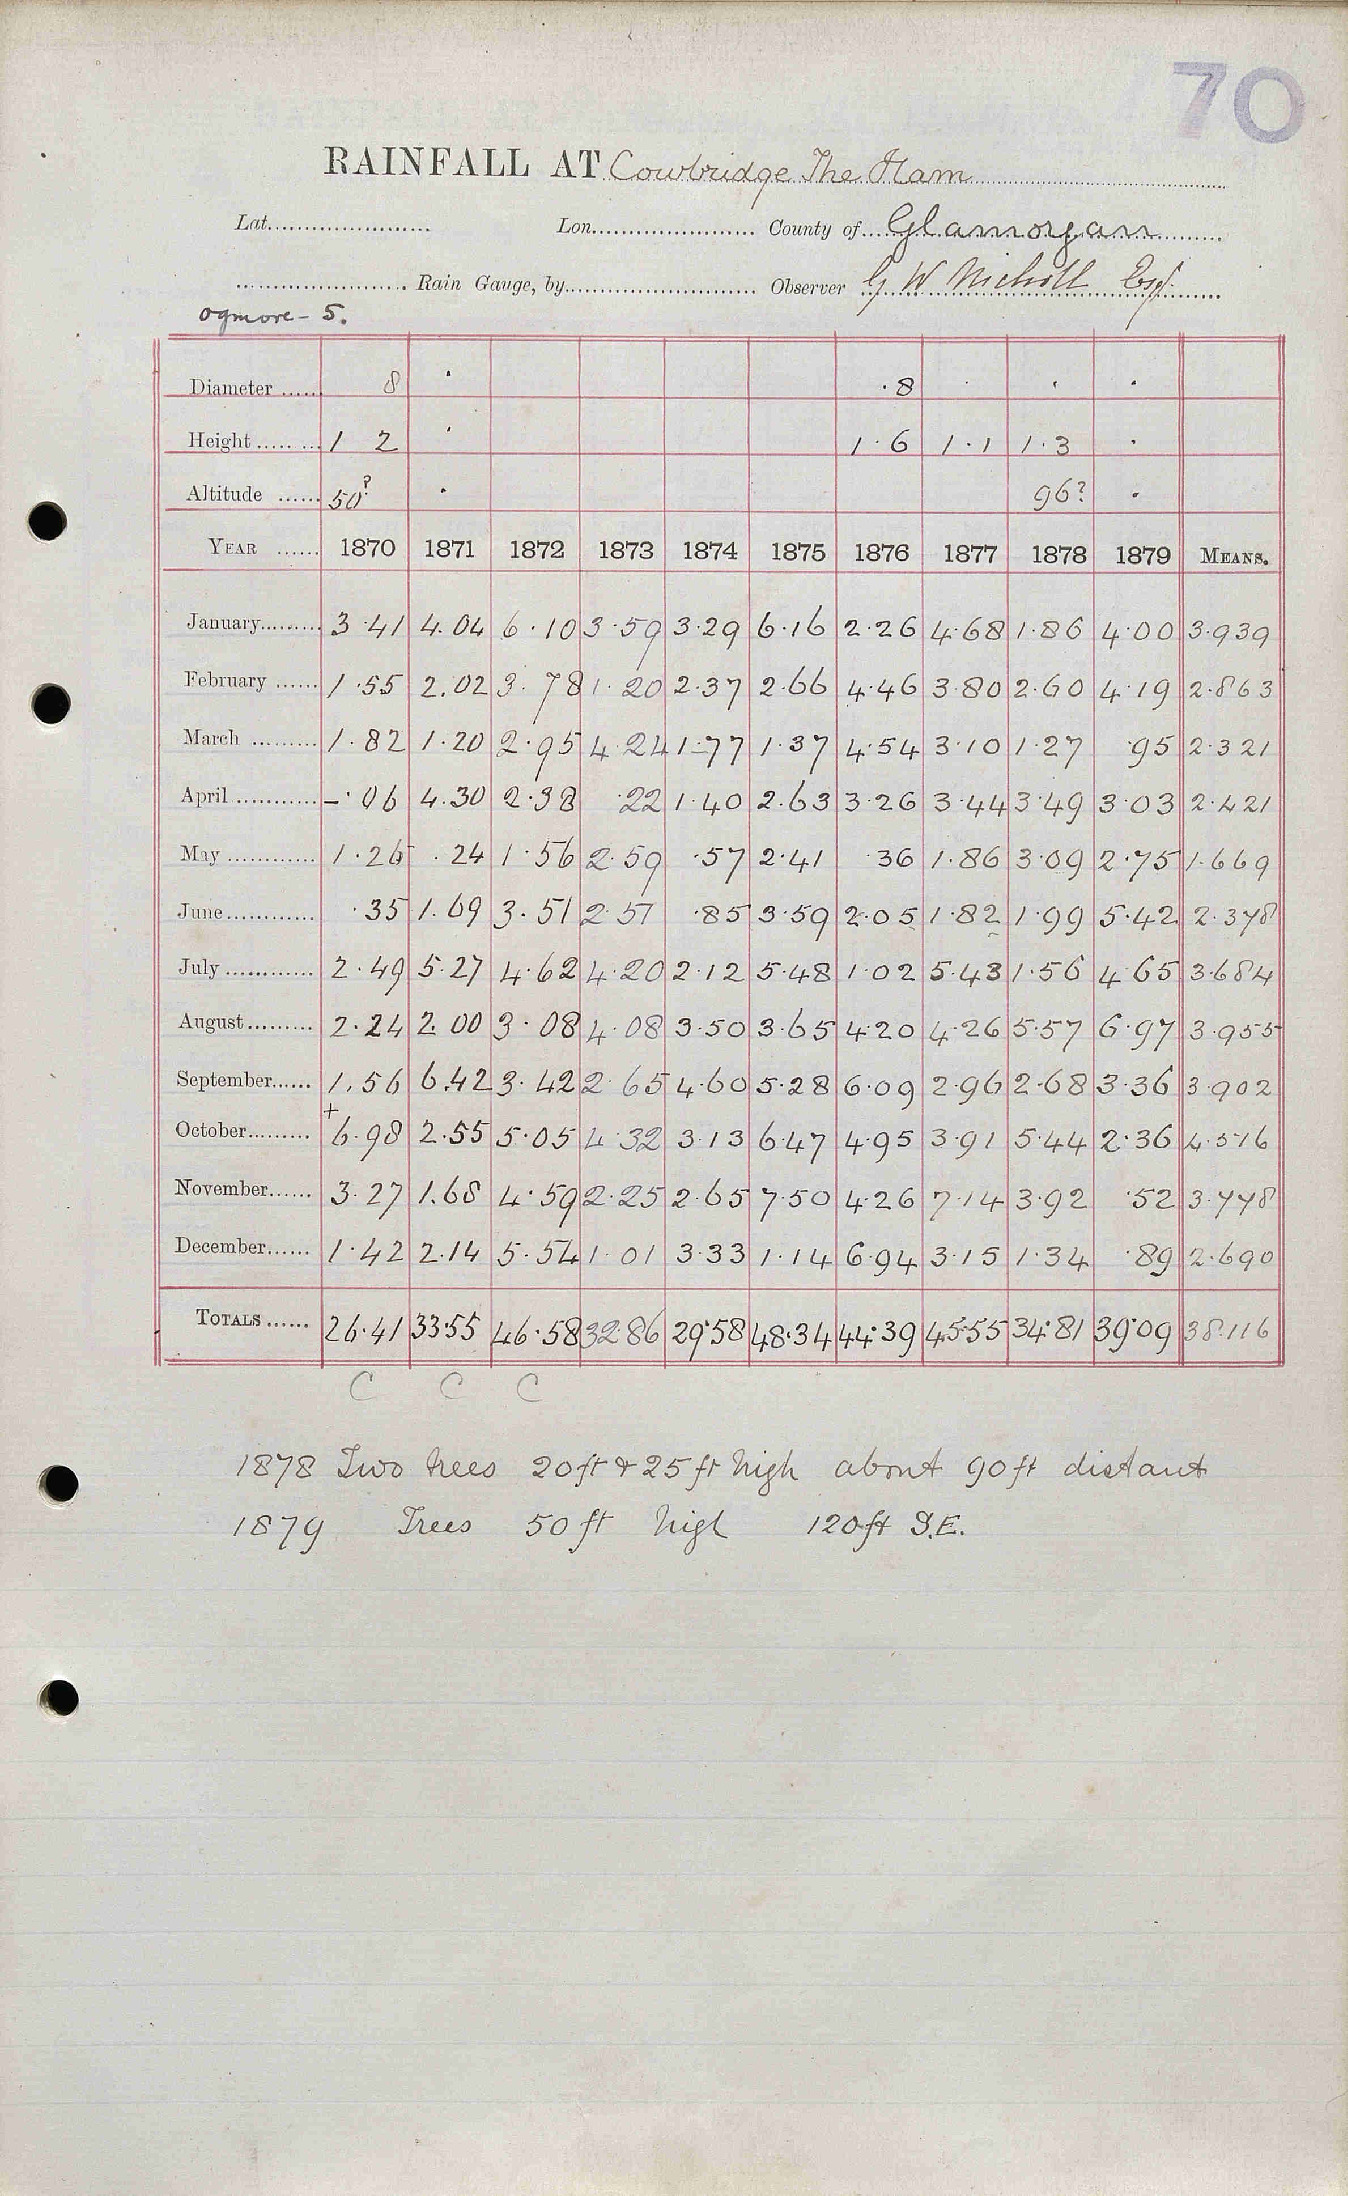 70
RAINFALL AT Cowbridge The Ham
Lat. Lon. County of Glamorgan
Rain Gauge, by Observer G W Nicholl Esq.
Ogmore - 5.
Diameter 8 · ·8 · · ·
Height 1 2 · 1·6 1·1 1·3 ·
Altitude 50? · 96? ·
YEAR 1870 1871 1872 1873 1874 1875 1876 1877 1878 1879 MEANS.
January 3·41 4.04 6·10 3·59 3·29 6·16 2·26 4·68 1·86 4·00 3·939
February 1·55 2.02 3·78 1·20 2·37 2·66 4·46 3·80 2·60 4·19 2·863
March 1·82 1·20 2·95 4·24 1·77 1·37 4·54 3·10 1·27 ·95 2·321
April –·06 4.30 2·38 ·22 1·40 2·63 3·26 3·44 3·49 3·03 2·421
May 1·26 ·24 1·56 2·59 ·57 2·41 36 1·86 3·09 2·75 1·669
June ·35 1.69 3·51 2·51 ·85 3·59 2·05 1·82 1·99 5·42 2·378
July 2·49 5·27 4·62 4·20 2·12 5·48 1·02 5·43 1·56 4·65 3·684
August 2·24 2.00 3·08 4·08 3·50 3·65 4·20 4·26 5·57 6·97 3·955
September 1.56 6.42 3·42 2·65 4·60 5·28 6·09 2·96 2·68 3·36 3·902
October +6·98 2·55 5·05 4·32 3·13 6·47 4·95 3·91 5·44 2·36 4·516
November 3·27 1.68 4·59 2·25 2·65 7·50 4·26 7·14 3·92 ·52 3·778
December 1·42 2.14 5·54 1·01 3·33 1·14 6·94 3·15 1·34 ·89 2·690
TOTALS 26·41 33·55 46·58 32·86 29·58 48·34 44·39 45·55 34·81 39·09 38·116
C C C
1878 Two trees 20ft & 25ft high about 90ft distant
1879 Trees 50ft high 120ft S.E.